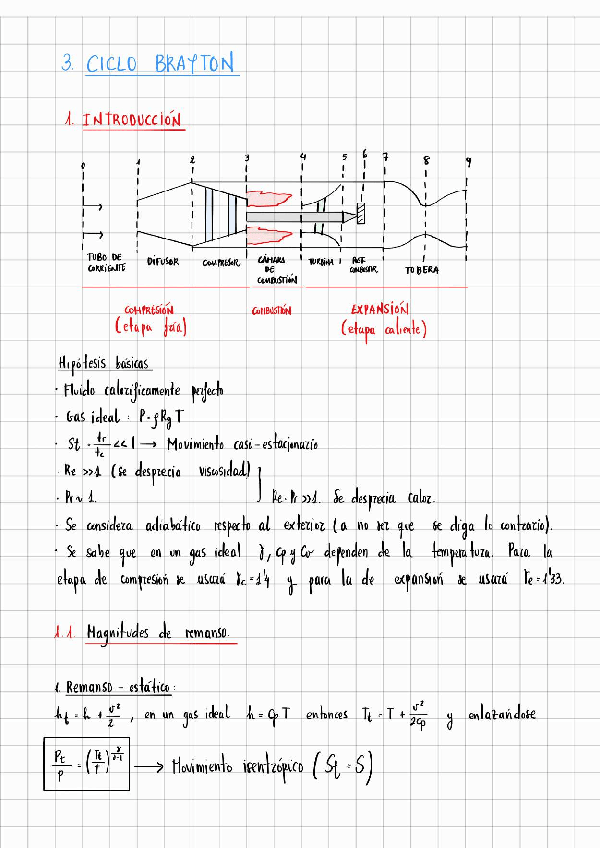 3. CICLO BRAYTON
1. INTRODUCCIÓN
0 1 2 3 4 5 6 7 8 9
TUBO DE CORRIENTE DIFUSOR COMPRESOR CÁMARA DE COMBUSTIÓN TURBINA POST COMBUSTOR TOBERA
COMPRESIÓN COMBUSTIÓN EXPANSIÓN
(etapa fría) (etapa caliente)
Hipótesis básicas
· Fluido calorificamente perfecto
· Gas ideal : P = ρ Rg T
· St = tr/tc << 1 → Movimiento casi-estacionario
· Re >> 1 (se desprecia viscosidad)
· Pr ~ 1. } Re · Pr >> 1. Se desprecia calor.
· Se considera adiabático respecto al exterior (a no ser que se diga lo contrario).
· Se sabe que en un gas ideal γ, cp y cv dependen de la temperatura. Para la
etapa de compresión se usará γc = 1'4 y para la de expansión se usará γe = 1'33.
1.1. Magnitudes de remanso.
1. Remanso - estático :
ht = h + v²/2 , en un gas ideal h = cp T entonces Tt = T + v²/2cp y enlazándose
Pt/P = (Tt/T)^γ/γ-1 → Movimiento isentrópico (St = S)